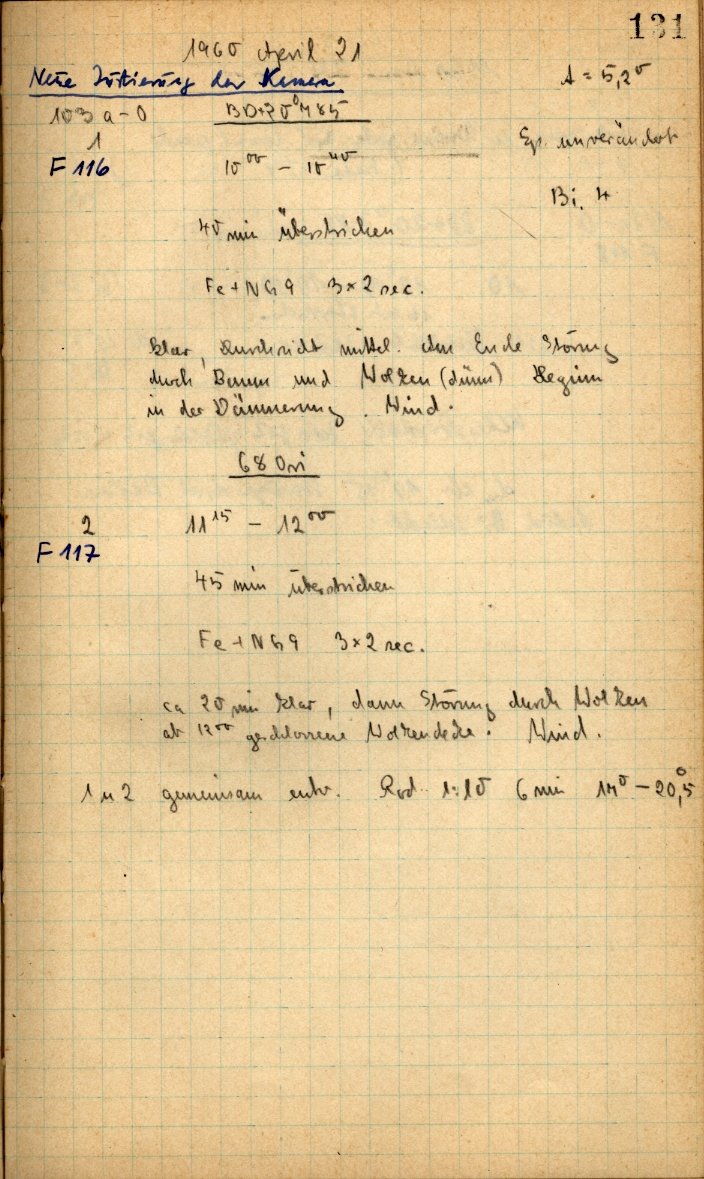 131
1960 April 21
Neue Justierung der Kamera
A = 5,20
103 a-O
BD+20°485
Sp. unverändert
1
F 116
10⁰⁰ – 10⁴⁰
Bi. 4
40 min überstrichen
Fe + NG9 3×2 sec.
klar, Durchsicht mittel. Am Ende Störung
durch Baum und Wolken (dünn) Beginn
in der Dämmerung. Wind.
68 Ori
2
11¹⁵ – 12⁰⁰
F 117
45 min überstrichen
Fe + NG9 3×2 sec.
ca 20 min klar, dann Störung durch Wolken
ab 12⁰⁰ geschlossene Wolkendecke. Wind.
1 u 2 gemeinsam entw. Rod. 1:10 6 min – 20,5°